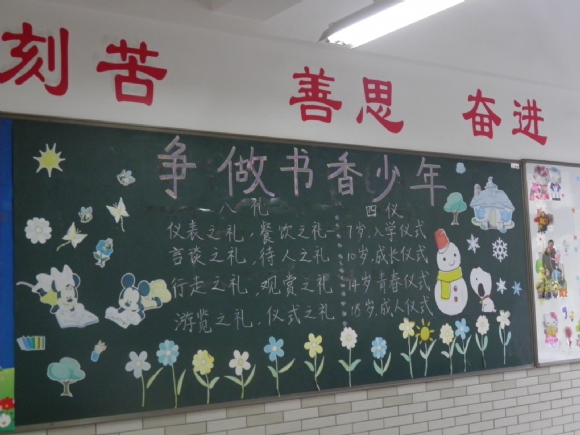 刻苦 善思 奋进
争做书香少年
八礼 四仪
仪表之礼、餐饮之礼 7岁,入学仪式
言谈之礼、待人之礼 10岁,成长仪式
行走之礼、观赏之礼 14岁青春仪式
游览之礼、仪式之礼 18岁,成人仪式